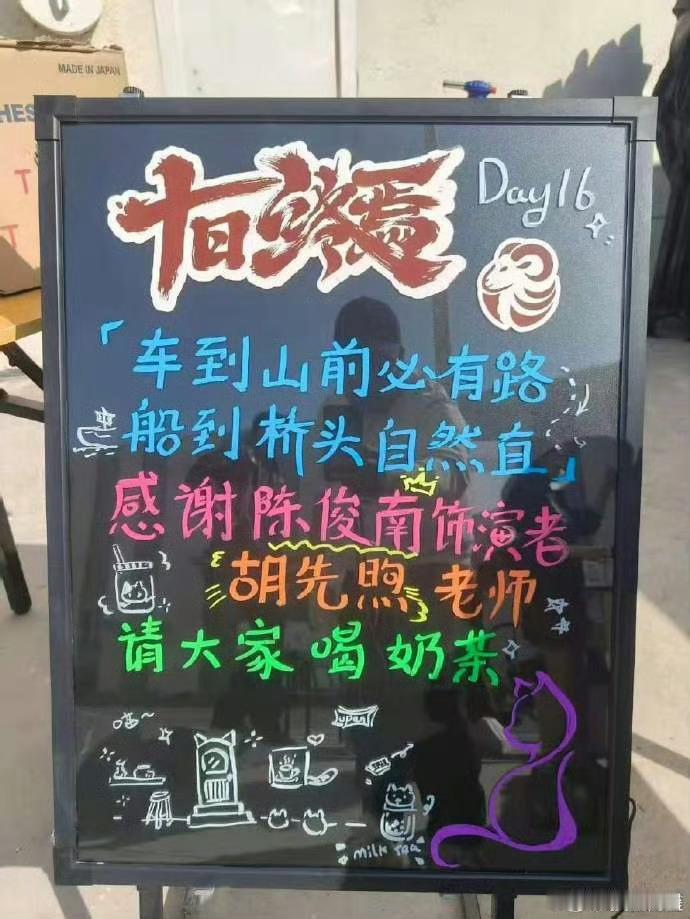 MADE IN JAPAN
十日终焉
Day16
「车到山前必有路
船到桥头自然直」
感谢陈俊南饰演者
胡先煦老师
请大家喝奶茶
喵~
milk tea